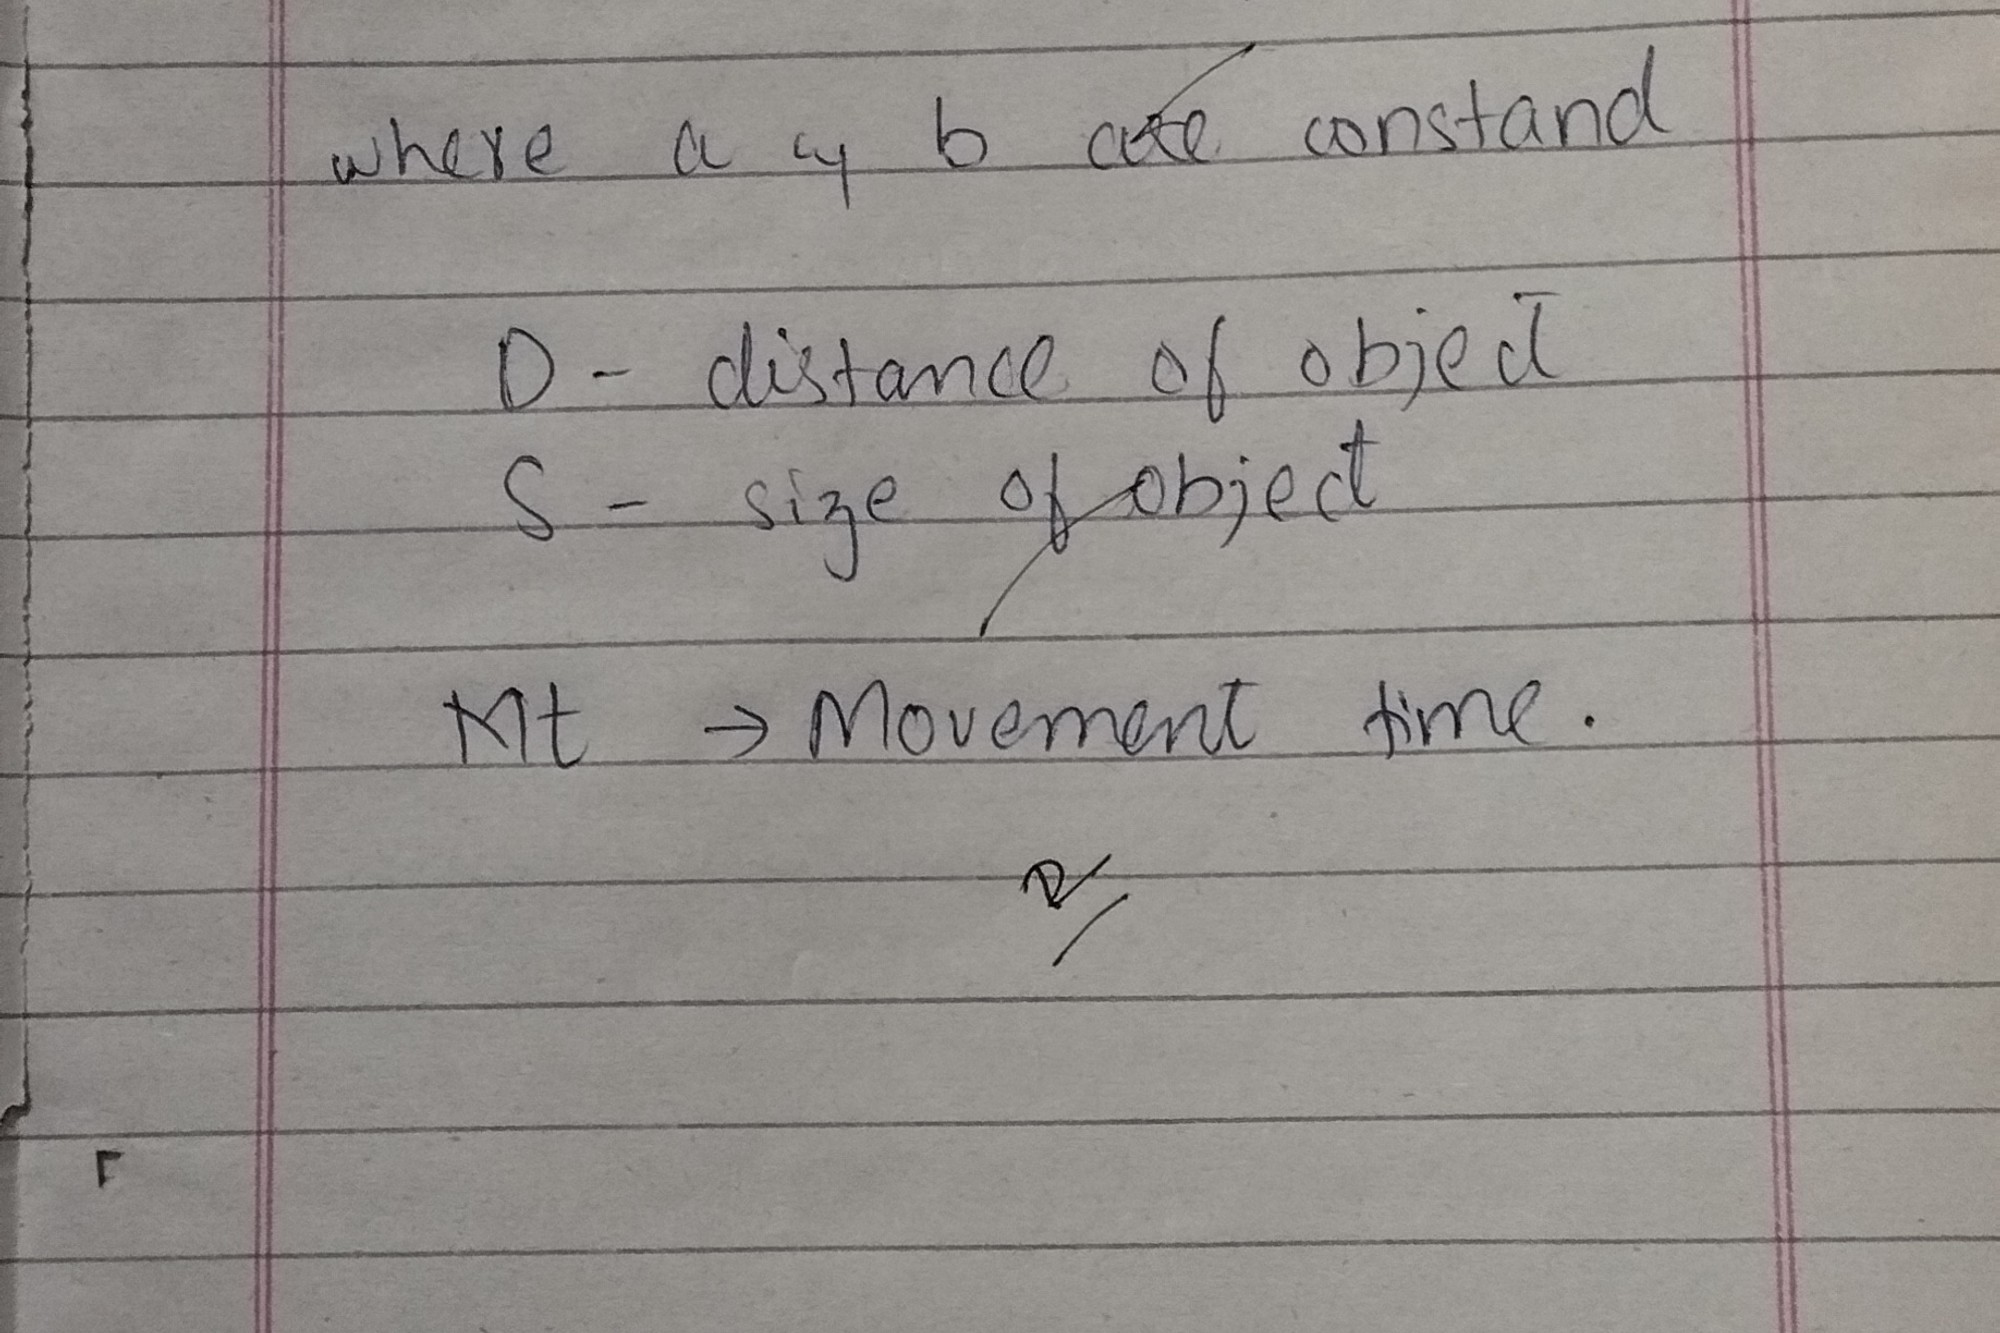 where a & b are constand
D - distance of object
S - size of object
Mt → Movement time.